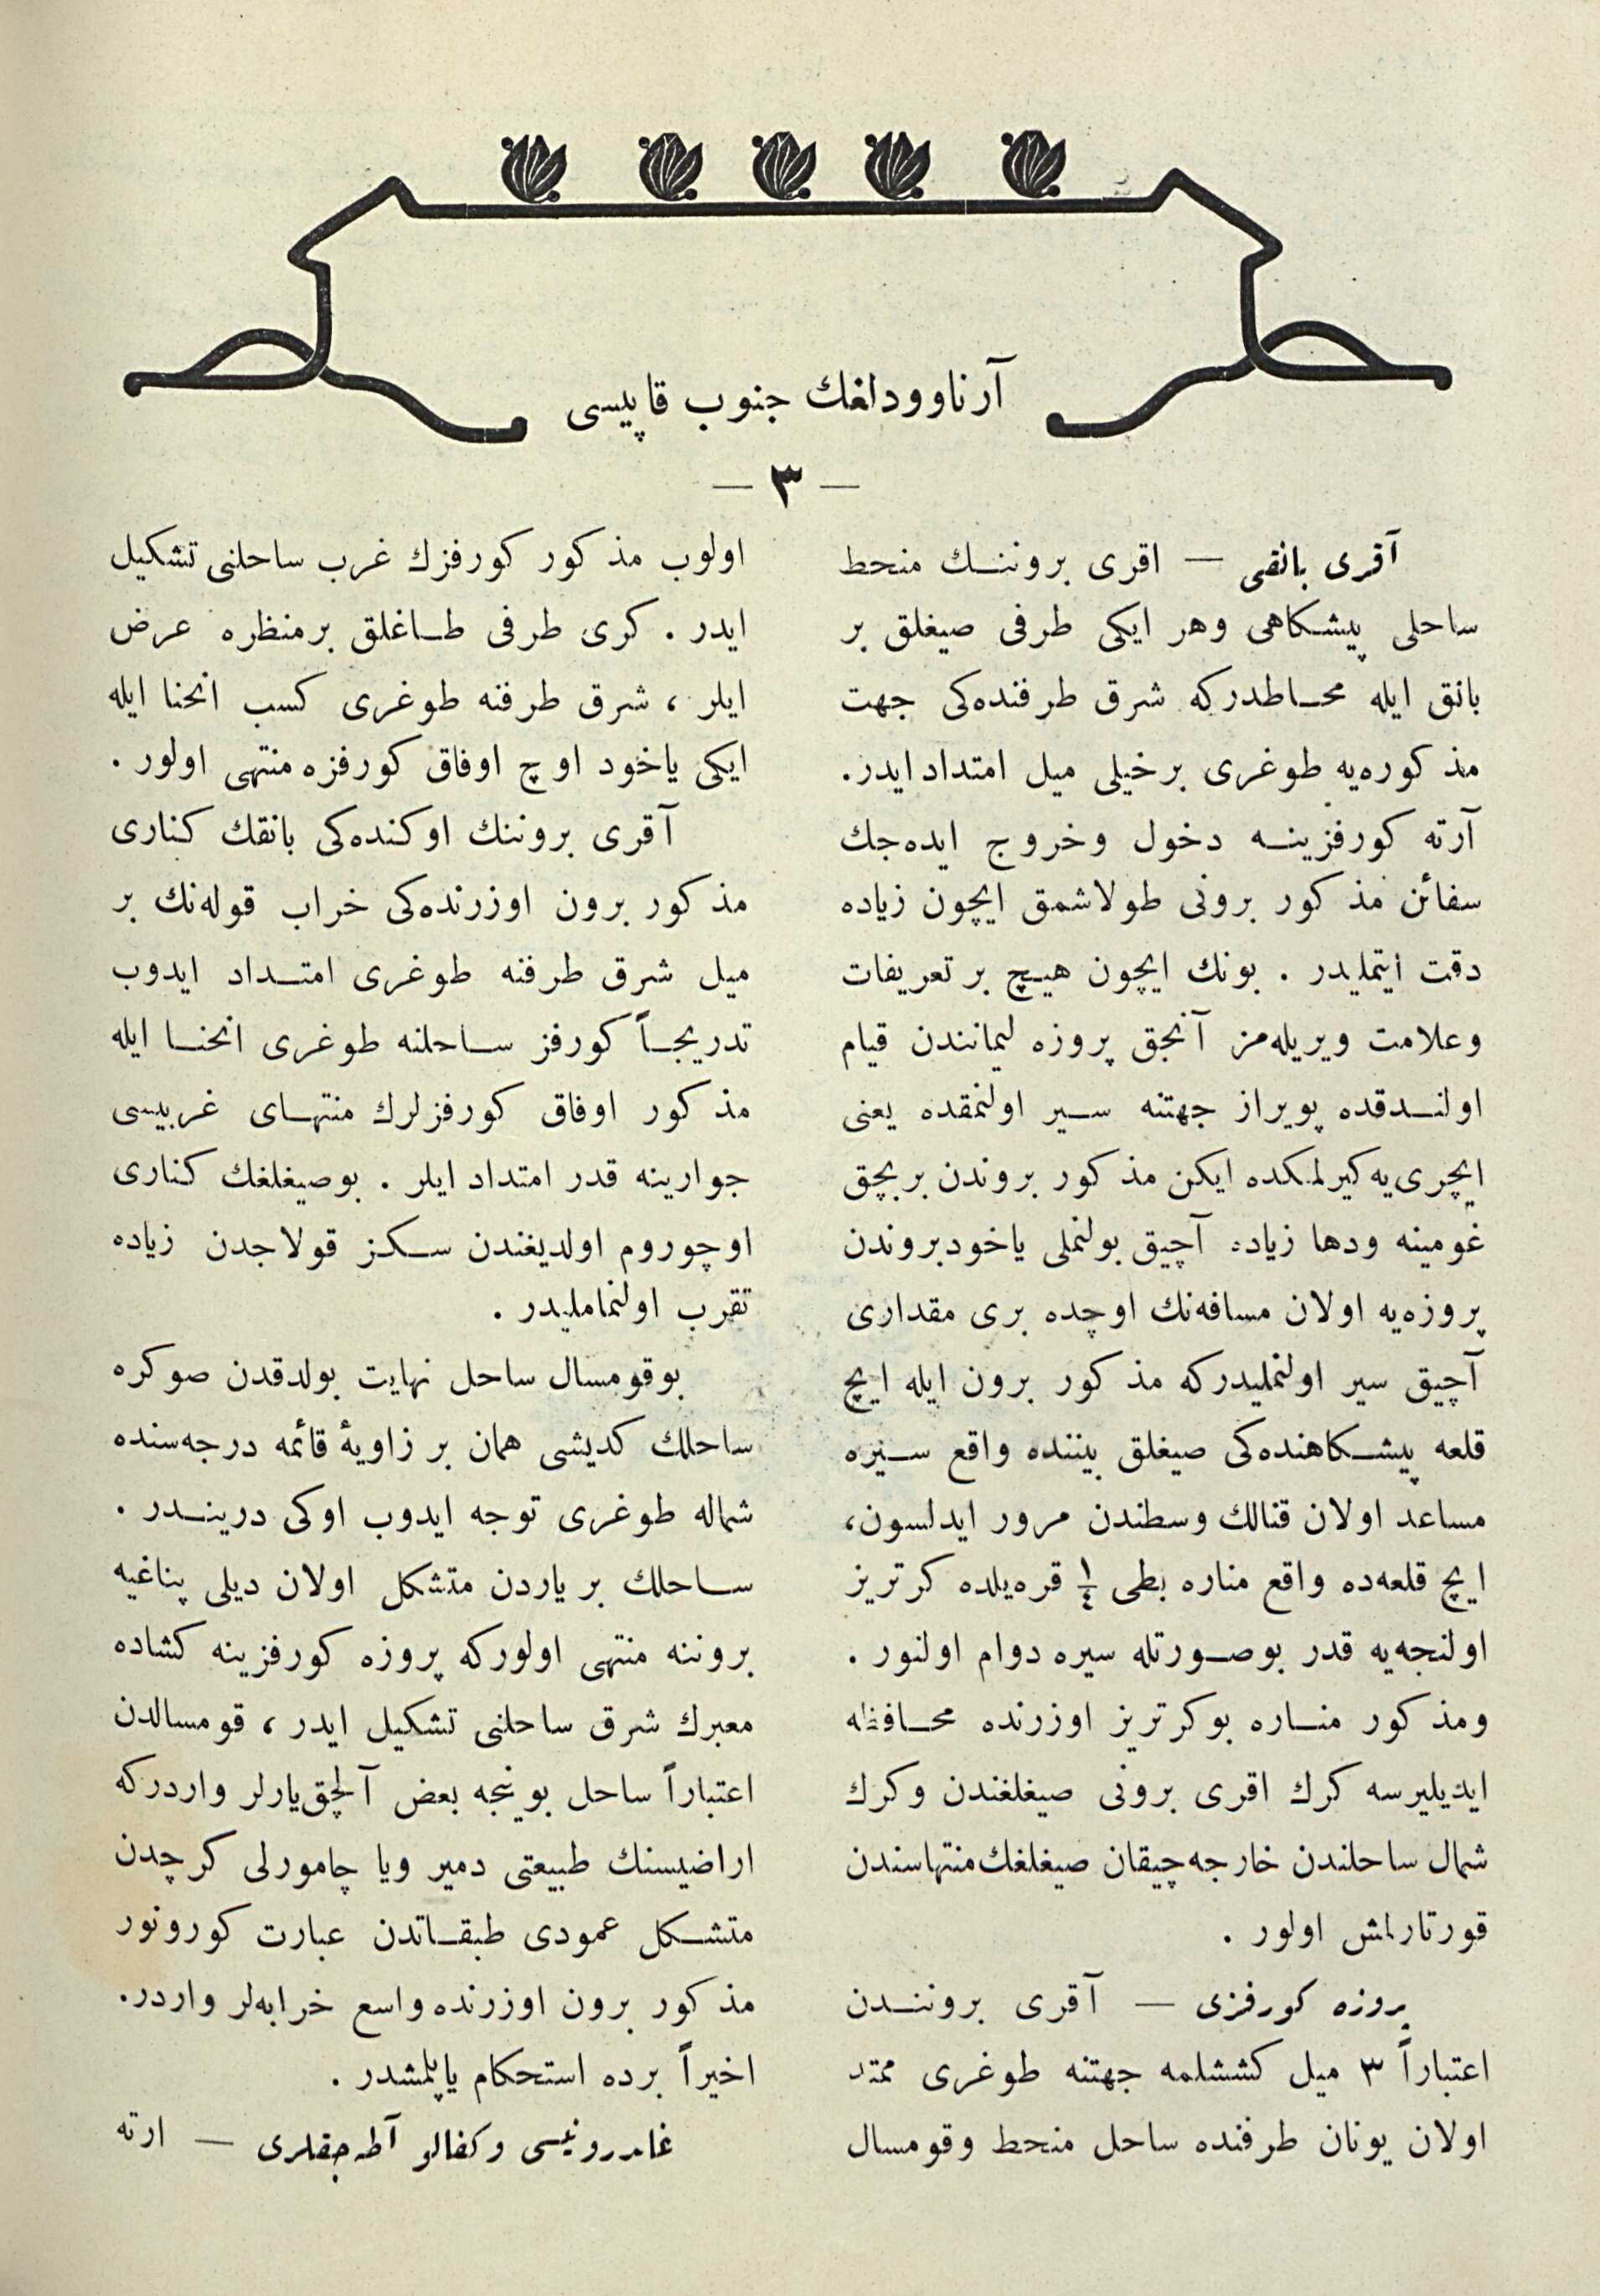 آرناووداغك جنوب قاپیسی
— ۳ —
آقری بانقی — اقری بروننـك منحط
ساحلی پیشـكاهی وهر ایكی طرفی صیغلق بر
بانق ایله محـاطدركه شرق طرفنده‌كی جهت
مذكوره‌یه طوغری برخیلی میل امتداد ایدر.
آرته كورفزینـه دخول وخروج ایده‌جك
سفائن مذكور برونی طولاشمق ایچون زیاده
دقت ایتملیدر . بونك ایچون هیـچ بر تعریفات
وعلامت ویریله‌مز آنجق پروزه لیمانندن قیام
اولنـدقده پویراز جهتنه سـیر اولنمقده یعنی
ایچری‌یه كیرلمكده ایكن مذكور بروندن بربچق
غومینه ودها زیاده آچیق بولنملی یاخود بروندن
پروزه‌یه اولان مسافه‌نك اوچده بری مقداری
آچیق سیر اولنملیدركه مذكور برون ایله ایچ
قلعه پیشـكاهنده‌كی صیغلق بیننده واقع سـیره
مساعد اولان قنالك وسطندن مرور ایدلسون،
ایچ قلعه‌ده واقع مناره بطی ¼ قره‌یلده كرتریز
اولنجه‌یه قدر بوصـورتله سیره دوام اولنور .
ومذكور منـاره بوكرتریز اوزرنده محـافظه
ایدیلیرسه كرك اقری برونی صیغلغندن وكرك
شمال ساحلندن خارجه‌چیقان صیغلغك منتهاسندن
قورتارلمش اولور .
پروزه كورفزی — آقری بروننـدن
اعتباراً ۳ میل كششلمه جهتنه طوغری ممتد
اولان یونان طرفنده ساحل منحط وقومسال
اولوب مذكور كورفزك غرب ساحلنی تشكیل
ایدر . كری طرفی طـاغلق برمنظره عرض
ایلر ، شرق طرفنه طوغری كسب انحنا ایله
ایكی یاخود اوچ اوفاق كورفزه منتهی اولور .
آقری بروننك اوكنده‌كی بانقك كناری
مذكور برون اوزرنده‌كی خراب قوله‌نك بر
میل شرق طرفنه طوغری امتـداد ایدوب
تدریجـاً كورفز سـاحلنه طوغری انحنـا ایله
مذكور اوفاق كورفزلرك منتهـای غربیسی
جوارینه قدر امتداد ایلر . بوصیغلغك كناری
اوچوروم اولدیغندن سـكز قولاجدن زیاده
تقرب اولنماملیدر .
بوقومسال ساحل نهایت بولدقدن صوكره
ساحلك كدیشی همان بر زاویهٔ قائمه درجه‌سنده
شماله طوغری توجه ایدوب اوكی درینـدر .
سـاحلك بر یاردن متشكل اولان دیلی پناغیه
بروننه منتهی اولوركه پروزه كورفزینه كشاده
معبرك شرق ساحلنی تشكیل ایدر ، قومسالدن
اعتباراً ساحل بونجه بعض آلچق‌یارلر واردركه
اراضیسنك طبیعتی دمیر ویا چامورلی كرچدن
متشـكل عمودی طبقـاتدن عبارت كورونور
مذكور برون اوزرنده واسع خرابه‌لر واردر.
اخیراً برده استحكام یاپلمشدر .
غامدرونیسی وكفالو آطه‌جقلری — ارته